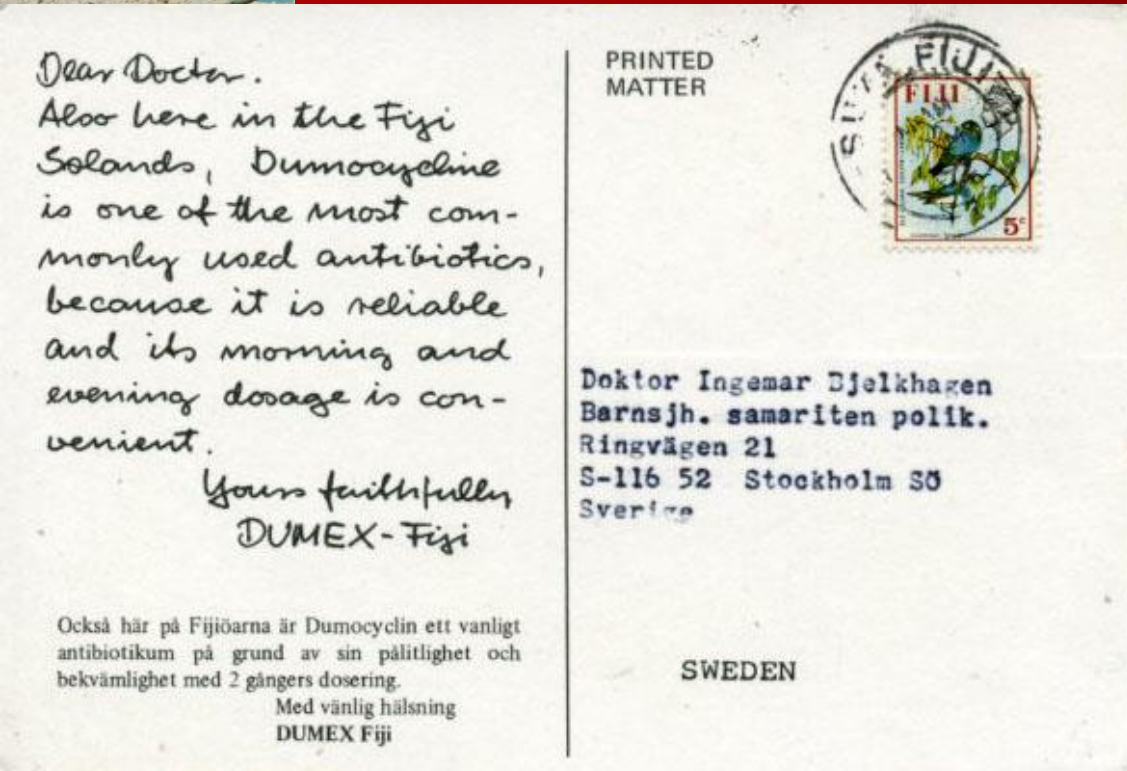 Dear Doctor.
Also here in the Fiji
Solands, Dumocycline
is one of the most com-
monly used antibiotics,
because it is reliable
and its morning and
evening dosage is con-
venient.
Yours faithfully
DUMEX-Fiji
Också här på Fijiöarna är Dumocyclin ett vanligt
antibiotikum på grund av sin pålitlighet och
bekvämlighet med 2 gångers dosering.
Med vänlig hälsning
DUMEX Fiji
PRINTED
MATTER
SUVA FIJI
FIJI
5c
Doktor Ingemar Bjelkhagen
Barnsjh. samariten polik.
Ringvägen 21
S-116 52 Stockholm SÖ
Sverige
SWEDEN